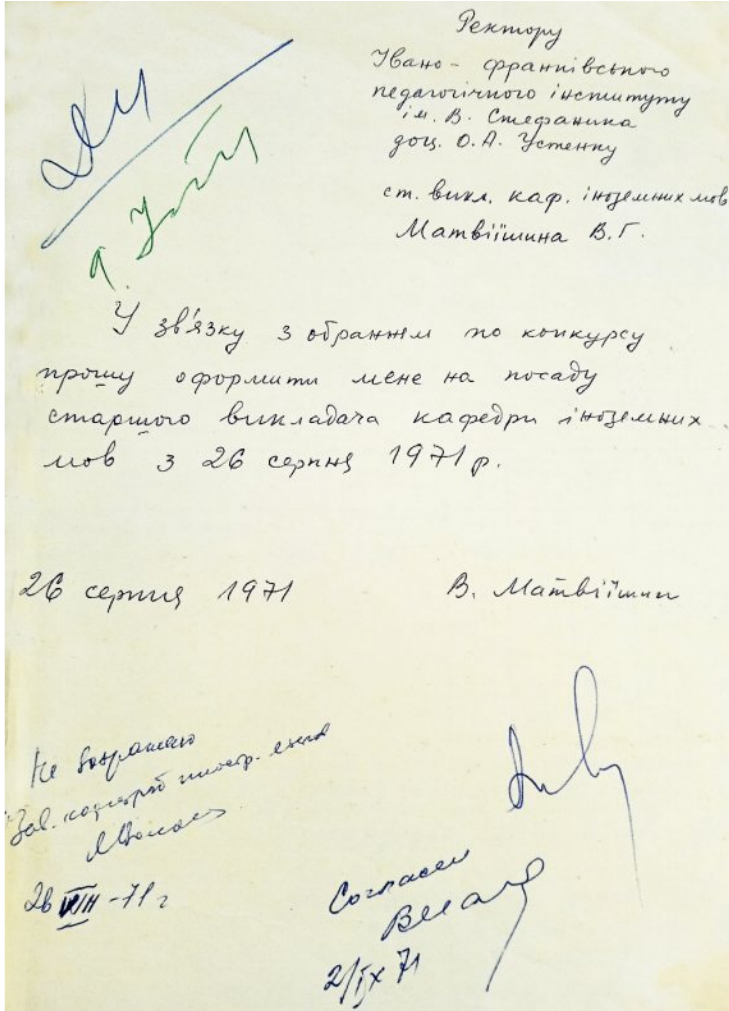 Ректору
Івано-франківського
педагогічного інституту
ім. В. Стефаника
доц. О.А. Устенку
ст. викл. каф. іноземних мов
Матвіїшина В.Г.
У зв'язку з обранням по конкурсу
прошу оформити мене на посаду
старшого викладача кафедри іноземних
мов з 26 серпня 1971 р.
26 серпня 1971
В. Матвіїшин
Не возражаю
Зав. кафедрой иностр. языков
26 VIII -71 г
Согласен
2/IX 71